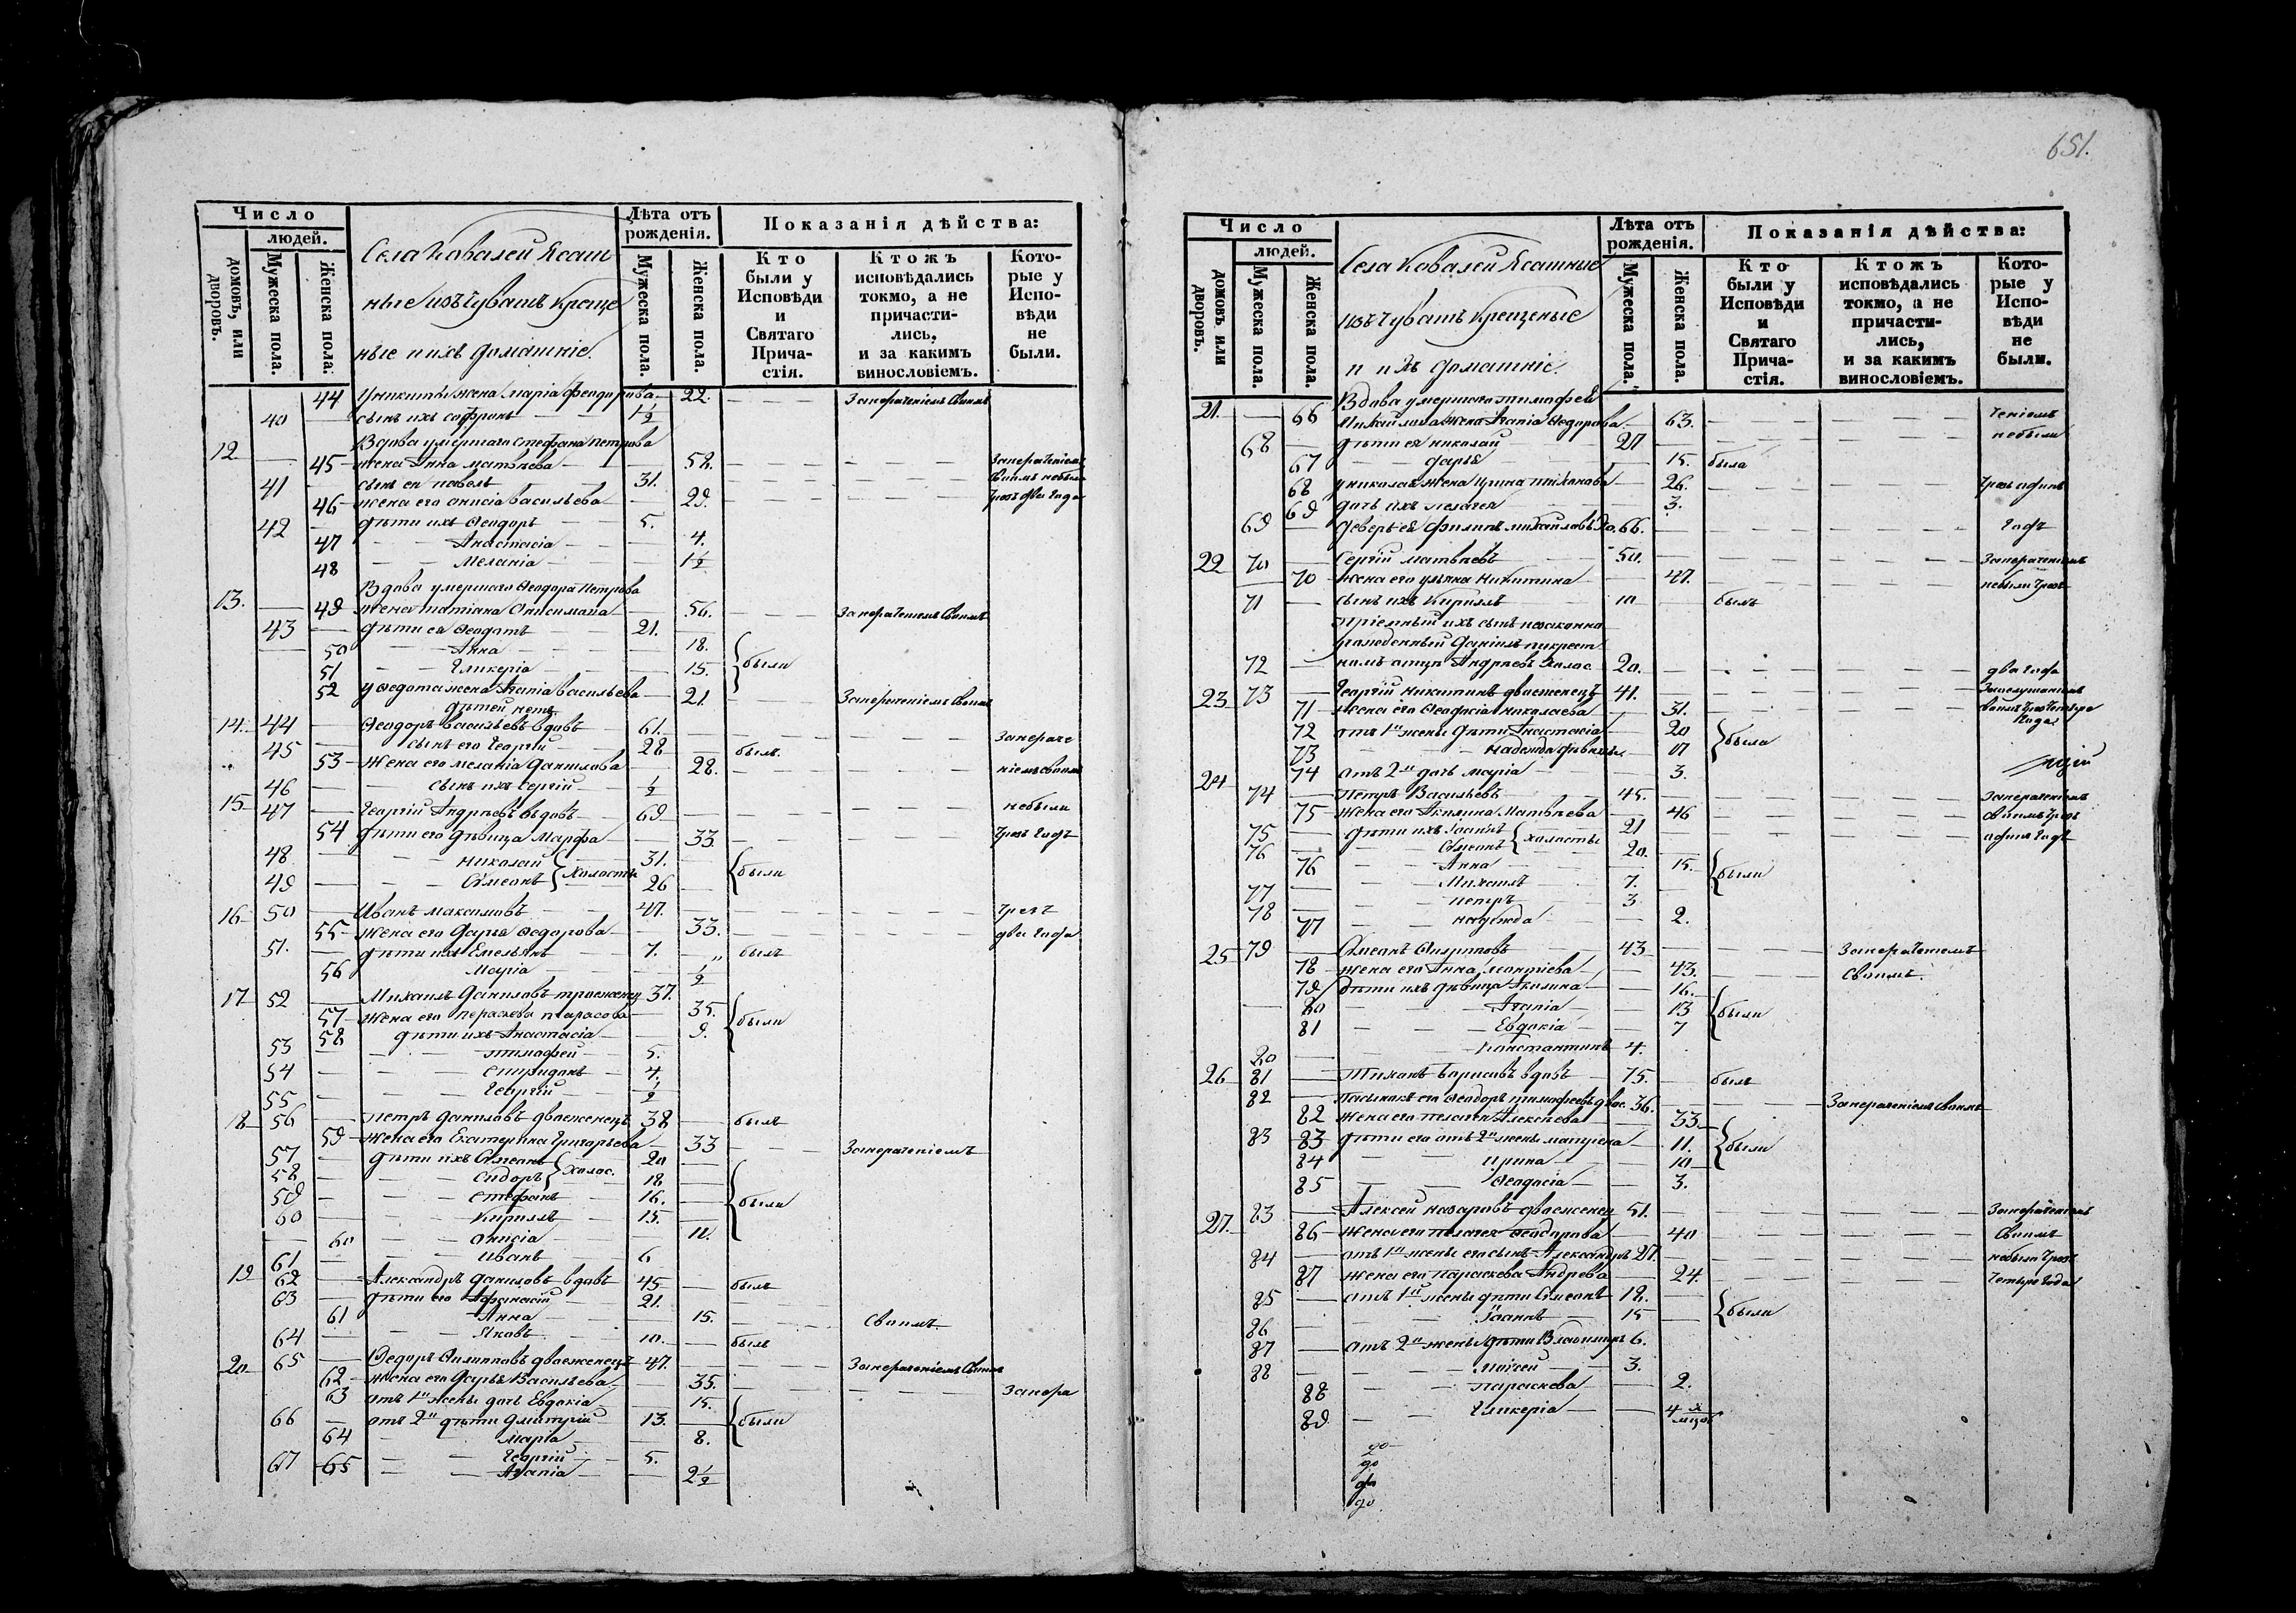 651.
Число
людей.
домовъ, или дворовъ.
Мужеска пола.
Женска пола.
Села Ковалей Ясаш
ные изъ Чувашъ Креще
ные и ихъ домашніе.
Лѣта отъ рожденія.
Мужеска пола.
Женска пола.
Показанія дѣйства:
Кто были у Исповѣди и Святаго Прича-стія.
Ктожъ исповѣдались токмо, а не причасти-лись, и за какимъ винословіемъ.
Кото-рые у Испо-вѣди не были.
44 У никиты жена марія феодорова 22. За опрятеніемъ Своимъ
40 сынъ ихъ софронъ 1½
12 Вдова умершаго стефана петрова
45 жена Анна матвѣева 52.
41 сынъ ея павелъ 31.
46 жена его анисіа васильева 29. чрезъ два года
42 дѣти ихъ Ѳеодоръ 5.
47 Анастасіа 4.
48 Меланіа 1½
Вдова умершаго Ѳеодора Петрова
13. 49 жена татіана Онисимова 56.
43 дѣти ея Ѳеодотъ 21.
50 Анна 18.
51 Гликеріа 15. были
52 у Ѳедота жена Агапіа васильева 21.
дѣтей нетъ
14. 44 Ѳеодоръ васильевъ вдовъ 61.
45 сынъ его Георгій 28 былъ
53 жена его меланіа данилова 28.
46 сынъ ихъ сергій ½
15 47 Георгій Андреевъ вдовъ 69 небыли
54 дѣти его дѣвица Марфа 33. чрезъ годъ
48 николай 31. холосты
49 Сѵмеонъ 26 были
16 50 Иванъ максимовъ 47. чрезъ
55 жена его дарья Ѳедорова 33. два года
51. дѣти ихъ Емельянъ 7. былъ
56 Маріа ½
17 52 Михаилъ Даниловъ троеженец 37.
57 жена его параскева тарасова 35. были
58 дѣти ихъ Анастасіа 9.
53 тимофей 5.
54 спиридонъ 4.
55 Георгій ½
18 56 петръ даниловъ двоеженецъ 38 былъ
59 жена его Екатерина Григорьева 33
57 дѣти ихъ Сѵмеонъ 20 холос.
58 Сидоръ 18
59 стефанъ 16. были
60 Кириллъ 15.
60 анисіа 11.
61 иванъ 6
19 62 Александръ даниловъ вдовъ 45 былъ
63 дѣти его Афанасій 21.
61 Анна 15. Своимъ
64 Яковъ 10. былъ
20 65 Ѳедоръ Филипповъ двоеженецъ 47.
62 жена его Дарья Васильева 35.
63 отъ 1й жены дочь Евдокіа 15.
66 отъ 2й дѣти дмитрій 13. были
64 маріа 8.
67 Георгій 5.
65 Агапіа 2½
Число
людей.
домовъ или дворовъ.
Мужеска пола.
Женска пола.
Села Ковалей Ясашные
изъ Чувашъ Крещеные
и ихъ домашніе.
Лѣта отъ рожденія.
Мужеска пола.
Женска пола.
Показанія дѣйства:
Кто были у Исповѣди и Святаго Прича-стія.
Ктожъ исповѣдались токмо, а не причасти-лись, и за какимъ винословіемъ.
Кото-рые у Испо-вѣди не были.
Вдова умершаго тимофея
21. 66 Михайлова жена Агапіа Ѳедорова 63. теніемъ
68 дѣти ея николай 27 небыли
67 дарья 15. была
68 у николая жена ирина тихонова 26. чрезъ одинъ
69 дочь ихъ пелагея 3.
69 деверь ея филипъ михайловъ 66. годъ
22 70 Сергій матвеевъ 50.
70 жена его ульяна Никитина 47. небыли чрезъ
71 сынъ ихъ Кириллъ 10 былъ
пріемный ихъ сынъ незаконно
рожденный Даніилъ по крест
72 номъ отцѣ Андреевъ холос 20. два года
23 73 Георгій никитинъ двоеженецъ 41.
71 жена его Ѳеодосіа николаева 31.
72 отъ 1й жены дѣти Анастасіа 20
73 надежда дѣвицы 17 была
74 отъ 2й дочь маріа 3.
24 74 Петръ Васильевъ 45.
75 жена его Акилина Матвѣева 46
75 дѣти ихъ Іоаннъ 21 холосты
76 Сѵмеонъ 20. одинъ годъ
76 Анна 15. были
77 Михаилъ 7.
78 петръ 3
77 надежда 2.
25 79 Сѵмеонъ Филиповъ 43
78 жена его Анна леонтіева 43. Своимъ
79 дѣти ихъ дѣвица Акилина 16.
80 Агапіа 13 были
81 Евдокіа 7
80 Константинъ 4.
26 81 Тихонъ борисовъ вдовъ 75. былъ
82 пасынокъ его Ѳеодоръ тимофеевъ двоє. 36.
82 жена его пелагея Алексѣева 33
83 83 дѣти его отъ 2й жены матрена 11. были
84 ирина 10
85 Ѳеодосіа 3.
27. 83 Алексей назаровъ двоеженец 51.
86 жена его пелагея Ѳеодорова 40 Своимъ
84 отъ 1й жены его сынъ Александръ 27. небыли чрезъ
87 жена его параскева Андреева 24. четыре года
85 отъ 1й жены дѣти Сѵмеонъ 18.
86 Іоаннъ 15 были
87 отъ 2й жены дѣти Владимиръ 6.
88 моисей 3.
88 параскева 2.
89 Гликеріа 4